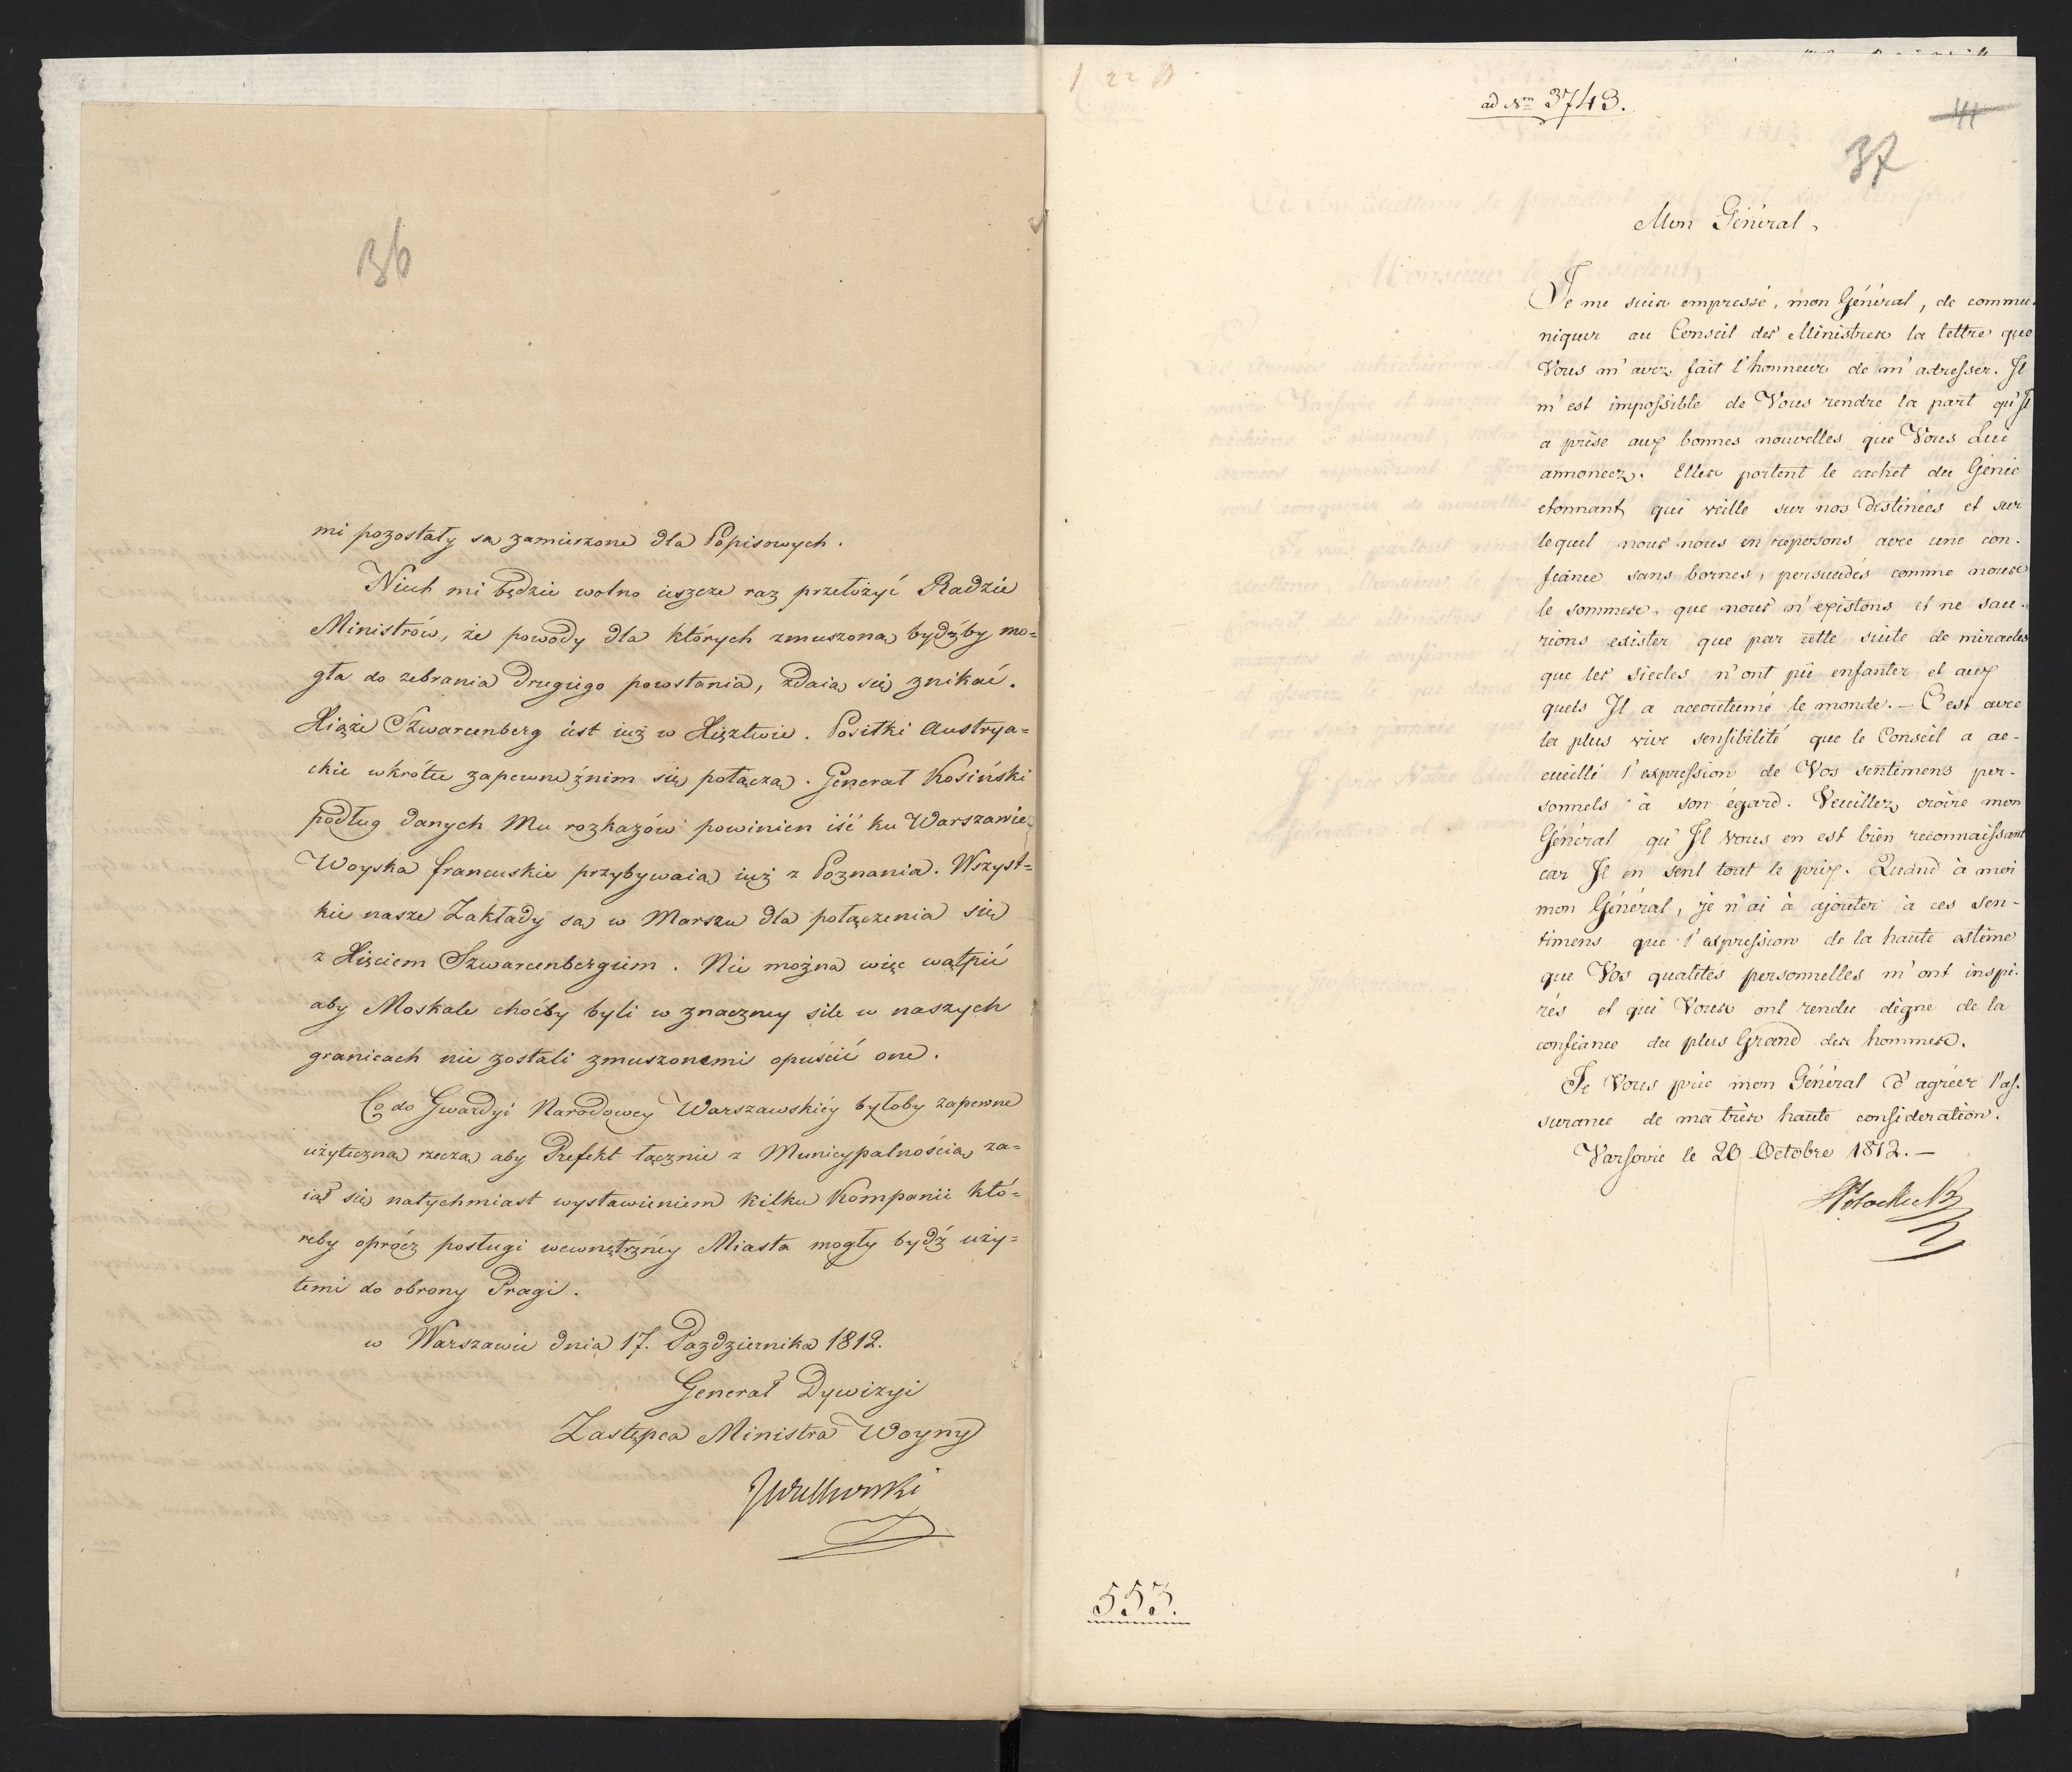 36
mi pozostały są zamierzone dla Popisowych.
Niech mi będzie wolno ieszcze raz przełożyć Radzie
Ministrów, że powody dla których zmuszona bydźby mo=
gła do zebrania drugiego powstania, zdaią się znikać.
Xiąże Szwarcenberg iest iuż w Xięztwie. Positki Austrya=
ckie wkrótce zapewne źnim się połączą. Generał Kosiński
podług danych Mu rozkazów powinien iść ku Warszawie,
Woyska francuskie przybywaią iuż z Poznania. Wszyst=
kie nasze Zakłady są w Marszu dla połączenia się
z Xięciem Szwarcenbergiem. Nie można więc wątpić
aby Moskale choćby byli w znaczney sile w naszych
granicach nie zostali zmuszonemi opuścić one.
Co do Gwardyi Narodowey Warszawskiéy byłoby zapewne
użyteczną rzeczą aby Prefekt łącznie z Municypalnością za=
iął się natychmiast wystawieniem kilku Kompanii któ=
reby oprócz posługi wewnętrznéy Miasta mogły bydź uży=
temi do obrony Pragi.
w Warszawie dnia 17. Pazdziernika 1812.
Generał Dywizyi
Zastępca Ministra Woyny
JWielhorski
ad Nm 3743.
41
37
Mon Général,
Je me suis empressé, mon Général, de commu-
niquer au Conseil des Ministres la lettre que
Vous m'avez fait l'honneur de m'adresser. Il
m'est impossible de Vous rendre la part qu'Il
a prise aux bonnes nouvelles que Vous Lui
annoncez. Elles portent le cachet du Génie
etonnant qui veille sur nos destinées et sur
lequel nous nous en reposons avec une con-
fiance sans bornes, persuadés comme nous
le sommes, que nous n'existons et ne sau-
rions exister que par cette suite de miracles
que les siecles n'ont pû enfanter et aux
quels Il a accoutumé le monde. — C'est avec
la plus vive sensibilité que le Conseil a ac-
cueilli l'expression de Vos sentimens per-
sonnels à son égard. Veuillez croire mon
Général qu'Il Vous en est bien reconnaissant
car Il en sent tout le prix. Quand à moi
mon Général, je n'ai à ajouter à ces sen-
timens que l'expression de la haute estime
que Vos qualités personnelles m'ont inspi-
rés et qui Vous ont rendu digne de la
confiance du plus Grand des hommes.
Je Vous prie mon Général d'agréer l'as-
surance de ma très haute consideration.
Varsovie le 20 Octobre 1812. —
553.